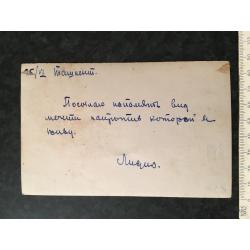 25/VI Ташкент.
Посылаю напомнить вид
мечети напротив которой я
живу.
Лидия.